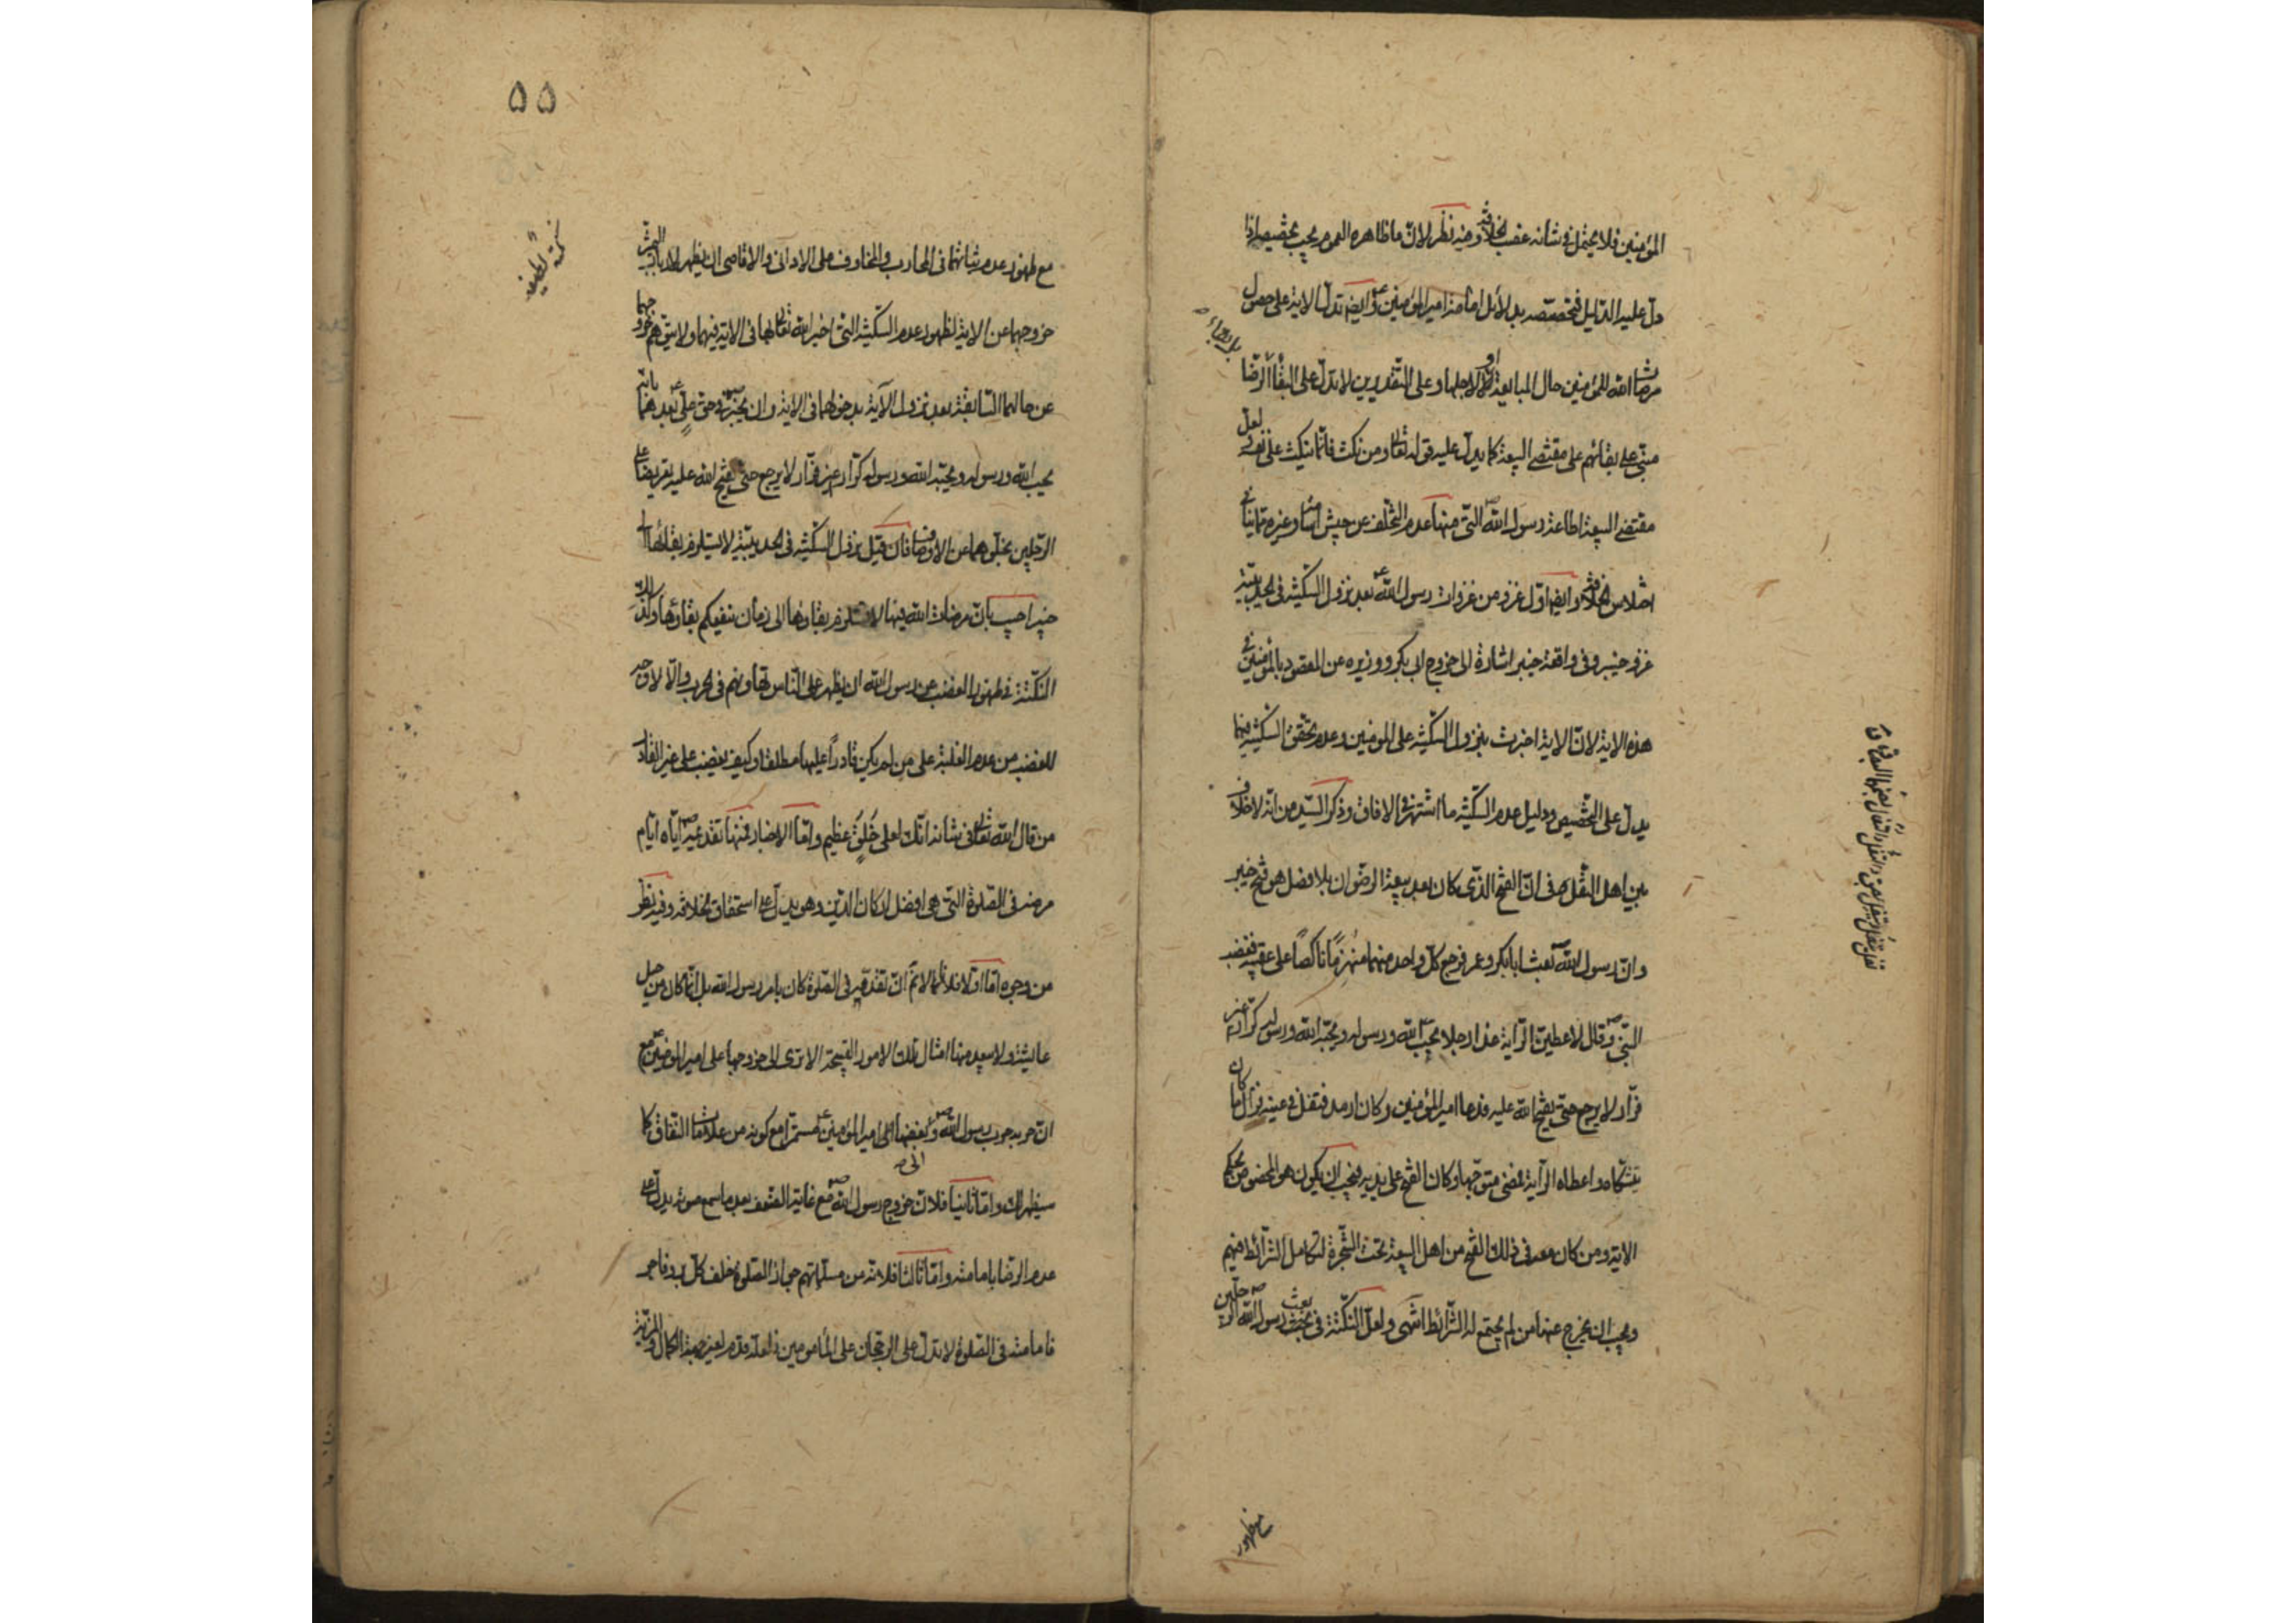 المؤمنين فلا يحتمل في شأنه غصب الخلافة وفيه نظر لان ما ظاهره العموم يجب تخصيصه اذا
دل عليه الدليل فنخصصه بدلائل امامة امير المؤمنين ع وايضا تدل الاية على حصول
مرضات الله للمؤمنين حال المبايعة او لاجلها وعلى التقديرين لا تدل على البقاء الرضا
مبني على بقائهم على مقتضى البيعة كما يدل عليه قوله تعالى ومن نكث فانما ينكث على نفسه ولعل
مقتضى البيعة اطاعة رسول الله ص التي منها عدم التخلف عن جيش اسامة وغيره مما ينافي
اختلاس الخلافة وايضا اول غزو من غزوات رسول الله ص بعد نزول السكينة في الحديبية
غزو خيبر وفي واقعة خيبر اشارة الى خروج ابي بكر ووزيره عن المقصود بالمؤمنين في
هذه الاية لان الاية اخبرت بنزول السكينة على المؤمنين وعدم تحقق السكينة فيهما
يدل على التخصيص ودليل عدم السكينة ما اشتهر في الافاق وذكر السيد من انه لا خلاف
بين اهل النقل في ان الفتح الذي كان بعد بيعة الرضوان بلا فصل هو فتح خيبر
وان رسول الله ص بعث ابا بكر وعمر فرجع كل واحد منهما منهزما ناكصا على عقبيه فغضب
النبي ص وقال لاعطين الراية غدا رجلا يحب الله ورسوله ويحبه الله ورسوله كرار غير
فرار لا يرجع حتى يفتح الله عليه فدعا امير المؤمنين وكان ارمد فتفل في عينيه فزال ما كان
يتشكاه واعطاه الراية فمضى متوجها وكان الفتح على يديه فيجب ان يكون هو المخصوص بحكم
الاية ومن كان معه في ذلك الفتح من اهل البيعة تحت الشجرة لتكامل الشرائط فيهم
ويجب ان يخرج عنها من لم يجتمع له الشرائط انتهى ولعل النكتة في بعث رسول الله ص الرجلين
مع ظهور
٥٥
مع ظهور عدم ثباتهما في المحارب والمخاوف على الاداني والاقاصي ان يظهر لارباب البصيرة
خروجهما عن الاية لظهور عدم السكينة التي اخبر الله تعالى بها في الاية فيهما ولا يتوهم خروجهما
عن حالهما السابقة بعد نزول الآية بدخولهما في الاية وان يخبر ص في حق علي ع بعدهما بانه
يحب الله ورسوله ويحبه الله ورسوله كرار غير فرار لا يرجع حتى يفتح الله عليه تعريضا على
الرجلين بخلوهما عن الاوصاف فان قيل نزول السكينة في الحديبية لا يستلزم بقائها الى
خيبر اجيب بان مرضات الله فيها لا يستلزم بقاؤها الى زمان ينفعكم بقاؤها
النكتة في ظهور الغضب عن رسول الله ان يظهر على الناس تهاونهم في الحرب والا لا وجه
للغضب من عدم الغلبة على من لم يكن قادرا عليها مطلقا وكيف يغضب على غير القادر
من قال الله تعالى في شانه انك لعلى خلق عظيم واما الاخبار فمنها تقديمه ص اياه ايام
مرضه في الصلوة التي هي افضل اركان الدين وهو يدل على استحقاق الخلافة وفيه نظر
من وجوه اما اولا فلانا لا نم ان تقديمه في الصلوة كان بامر رسول الله بل انما كان من حيل
عايشة ولا يبعد منها امثال تلك الامور القبيحة الا ترى الى خروجها على امير المؤمنين ع مع
ان حربه حرب رسول الله ص وبغضها الى امير المؤمنين ع مستمرا مع كونه من علامات النفاق كما
سيظهر لك واما ثانيا فلان خروج رسول الله ص مع غاية الضعف بعد ما سمع صوته يدل على
عدم الرضا بامامته واما ثالثا فلانه من مسلماتهم جواز الصلوة خلف كل بر وفاجر
فامامته في الصلوة لا تدل على الرجحان على المأمومين